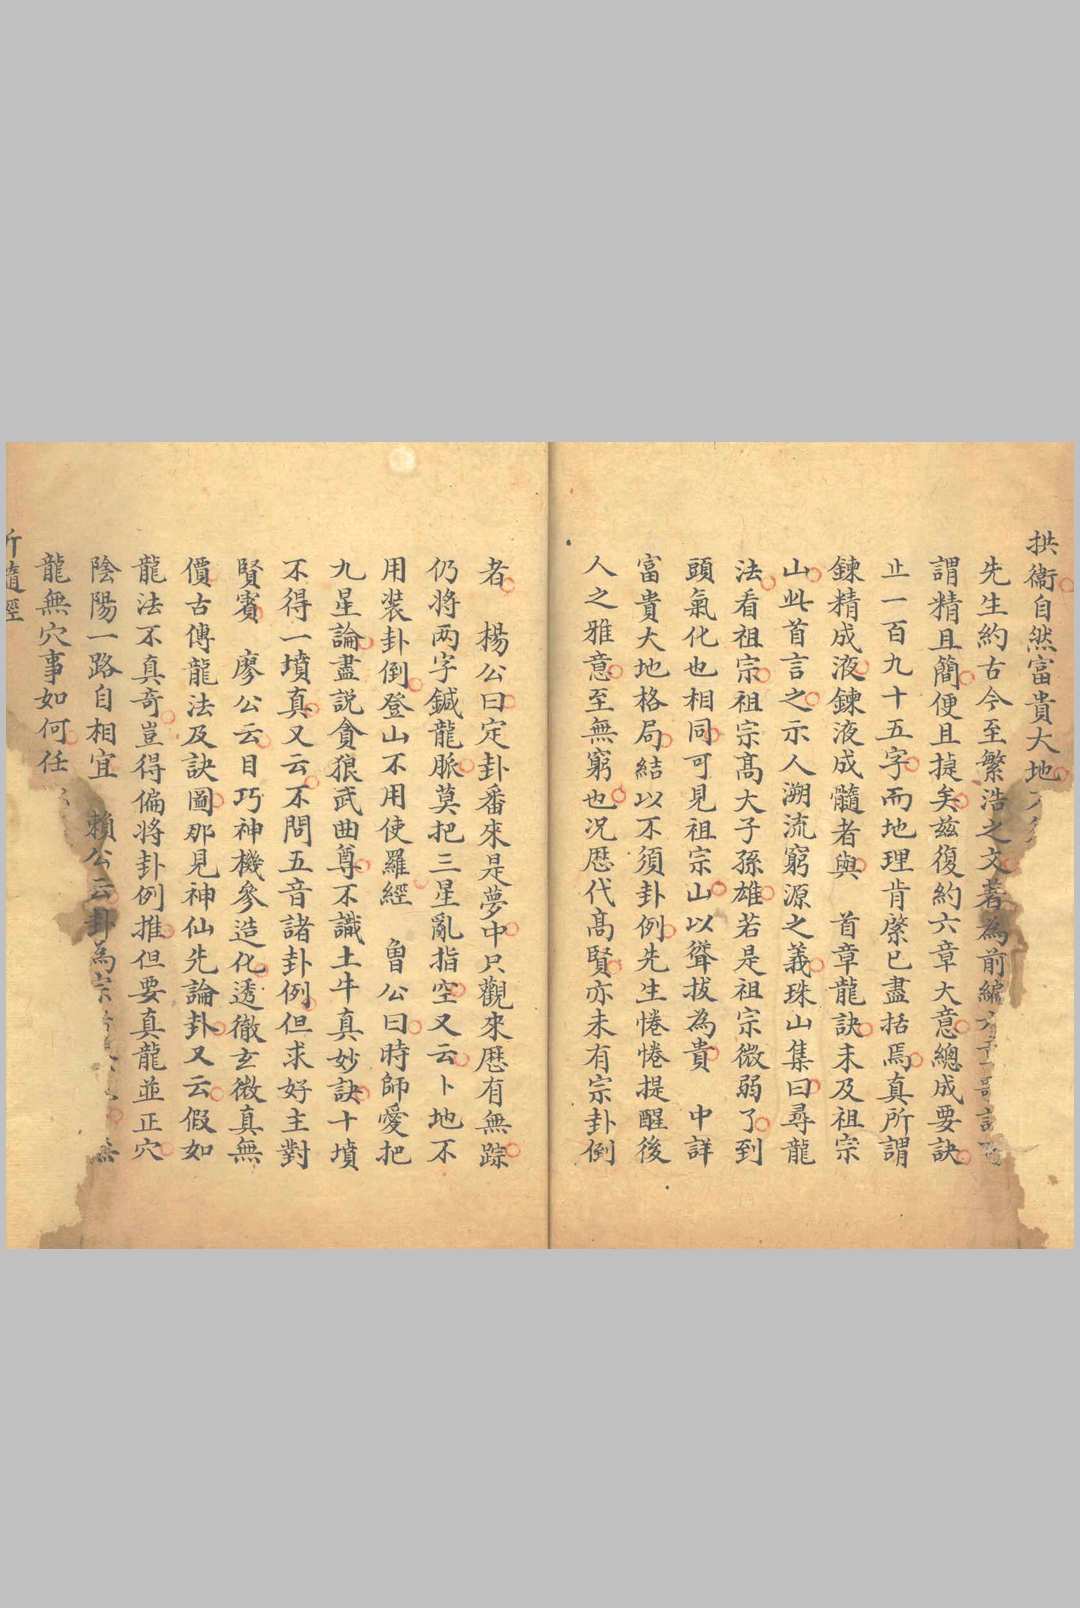 拱衞自然富貴大地
先生約古今至繁浩之文著為前編
謂精且簡便且㨗矣兹復約六章大意總成要訣
止一百九十五字而地理肯綮已盡括焉真所謂
鍊精成液鍊液成髓者與　首章龍訣未及祖宗
山此首言之示人溯流窮源之義珠山集曰尋龍
法看祖宗祖宗髙大子孫雄若是祖宗微弱了到
頭氣化也相同可見祖宗山以聳拔為貴　中詳
富貴大地格局結以不須卦例先生惓惓提醒後
人之雅意至無窮也况歴代髙賢亦未有宗卦例
者　楊公曰定卦番來是夢中只觀來歴有無踪
仍將两字鍼龍脈莫把三星亂指空又云卜地不
用装卦倒登山不用使羅經　曾公曰時師愛把
九星論盡説貪狼武曲尊不識土牛真妙訣十墳
不得一墳真又云不問五音諸卦例但求好主對
賢賓　廖公云目巧神機參造化透徹玄微真無
價古傳龍法及訣圖那見神仙先論卦又云假如
龍法不真奇豈得偏將卦例推但要真龍並正穴
陰陽一路自相宜　賴公云卦為宗無
龍無穴事如何任
髓經